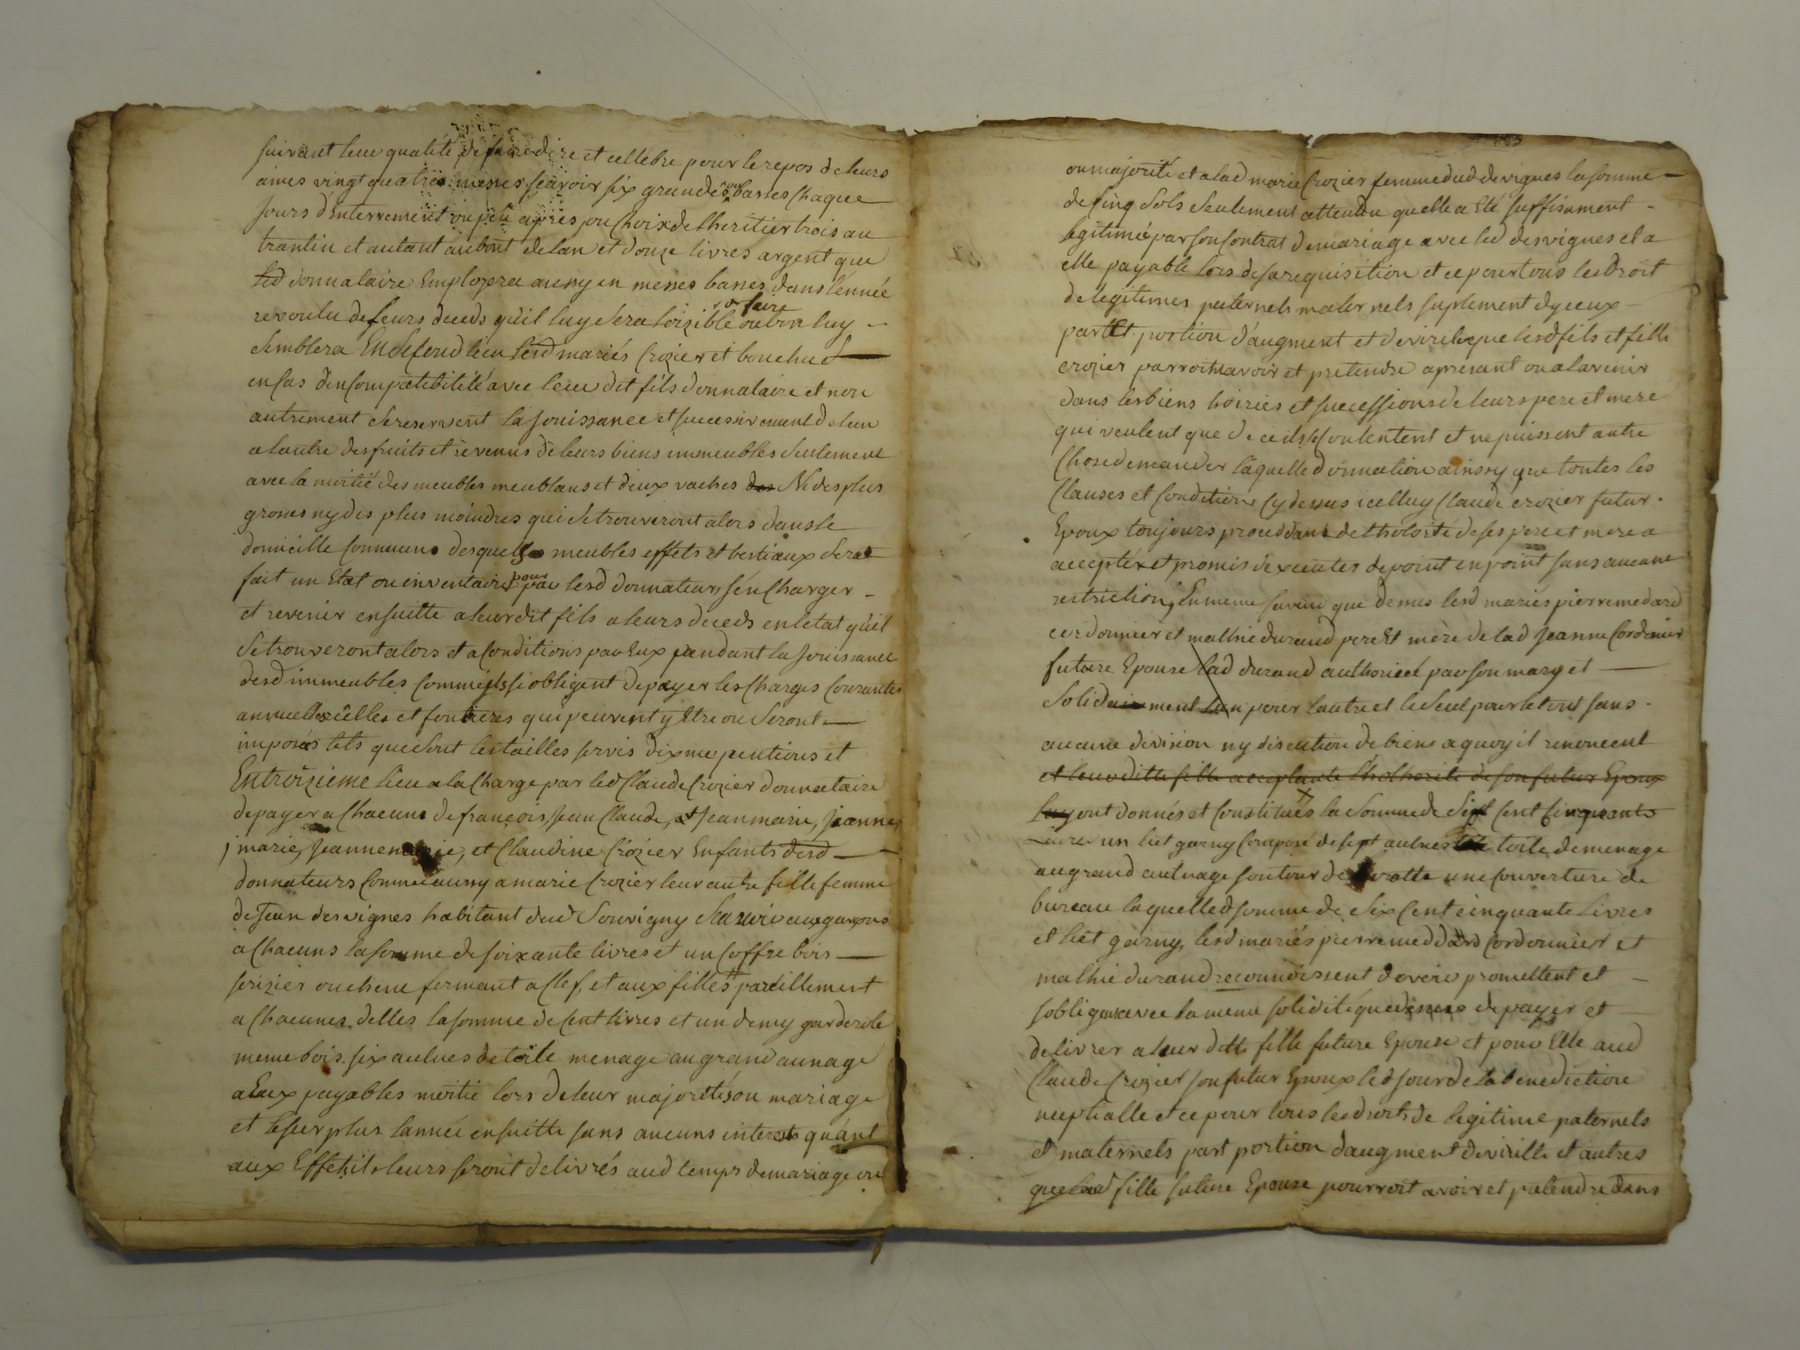 suivant leur qualité de faire dire et cellebre pour le repos de leurs
ames vingt quatres messes sçavoir six grandes ou basses chaque
jours d'enterrement ou peu apres, ou choix de lheritier trois au
trantin et autant au bout de lan et douze livres argent que
led donnataire Employera aussy en messes basses dans lennée
revoulu de leurs deceds qu'il luy sera loizible ou bon luy
semblera En second lieu lesd mariés Crozier et bouchud
en cas d'incompatibilité avec leur dit fils donnataire et non
autrement se reservent la jouissance et successivement de lun
a lautre des fruits et revenus de leurs biens immeubles seulement
avec la moitié des meubles meublans et deux vaches Ny des plus
grosses ny des plus moindres qui se trouveront alors dans le
domicille commun desquels meubles effets et bestiaux sera
fait un Etat ou inventaire pour par lesd donnateurs s'en charger
et revenir ensuitte a leur dit fils a leurs deceds en letat qu'il
se trouveront alors et a conditions par Eux pandant la jouissance
desd immeubles comme ils s'obligent de payer les charges courantes
annuelles réelles et fontieres qui peuvent y Etre ou seront
imposés tels que sont les tailles servis dixme pentions et
Entroizieme lieu a la charge par led Claude Crozier donnataire
de payer a chacuns de françois, Jean Claude, et Jean marie, Jeanne
marie, Jeanne marie, et Claudine Crozier Enfants desd
donnateurs comme aussy a marie Crozier leur autre fille femme
de Jean desvignes habitant dud Souvigny sçavoir aux garçons
a chacuns la somme de soixante livres et un coffre bois
serizier ou chene fermant a clef, et aux filles pareillement
a chacunes delles la somme de cent livres et un demy garderobe
meme bois, six aulnes de toile menage au grand aunage
a Eux payables moitié lors de leur majorité ou mariage
et le surplus lannée ensuitte sans aucuns interets quant
aux Effets ils leurs seront delivrés aud temps de mariage ou
ou majorité et a lad marie Crozier femme dud desvignes la somme
de cinq sols seulement attendu quelle a Eté suffisament
legitimée par son contrat de mariage avec led desvignes et a
elle payable lors de sa requisition et ce pour tous les droit
de legitimes paternels maternels suplement dyceux
part et portion d'augment et de virile que lesd fils et fille
crozier pourroit avoir et pretendre apresant ou a lavenir
dans les biens hoiries et successions de leurs pere et mere
qui veulent que de ce ils se contentent et ne puissent autre
chose demander laquelle donnation ainsy que toutes les
clauses et conditions cy dessus icelluy Claude crozier futur
Epoux toujours procedant de lhotorité de ses pere et mere a
acceptée et promis d'executer de point en point sans aucune
restriction, En meme faveur que dessus lesd mariés pierre medard
cordonnier et mathie durand pere Et mère de lad Jeanne Cordonier
future Epouse lad durand authorisée par son mary et
solidairement lun pour lautre et le seul pour le tout sans
aucune division ny discution de biens a quoy il renoncent
et leur ditte fille acceptante lhothorité de son futur Epoux
luy ont donnés et constitués la somme de six cent cinquante
livres un liet garny composé de sept aulnes toile de menage
au grand aulnage son tour de une couverture de
bureau laquelled somme de six cent cinquante livres
et liet garny, lesd mariés pierre meddard cordonnier et
mathie durand reconnoissent devoir promettent et
sobligent avec la meme solidité que dessus de payer et
delivrer a leur ditte fille future Epouse et pour Elle aud
Claude Crozier son futur Epoux led jour de la benediction
nuptialle et ce pour tous les droits de legitime paternels
et maternels part portion daugment de virille et autres
que lad fille future Epouse pourroit avoir et pretendre dans